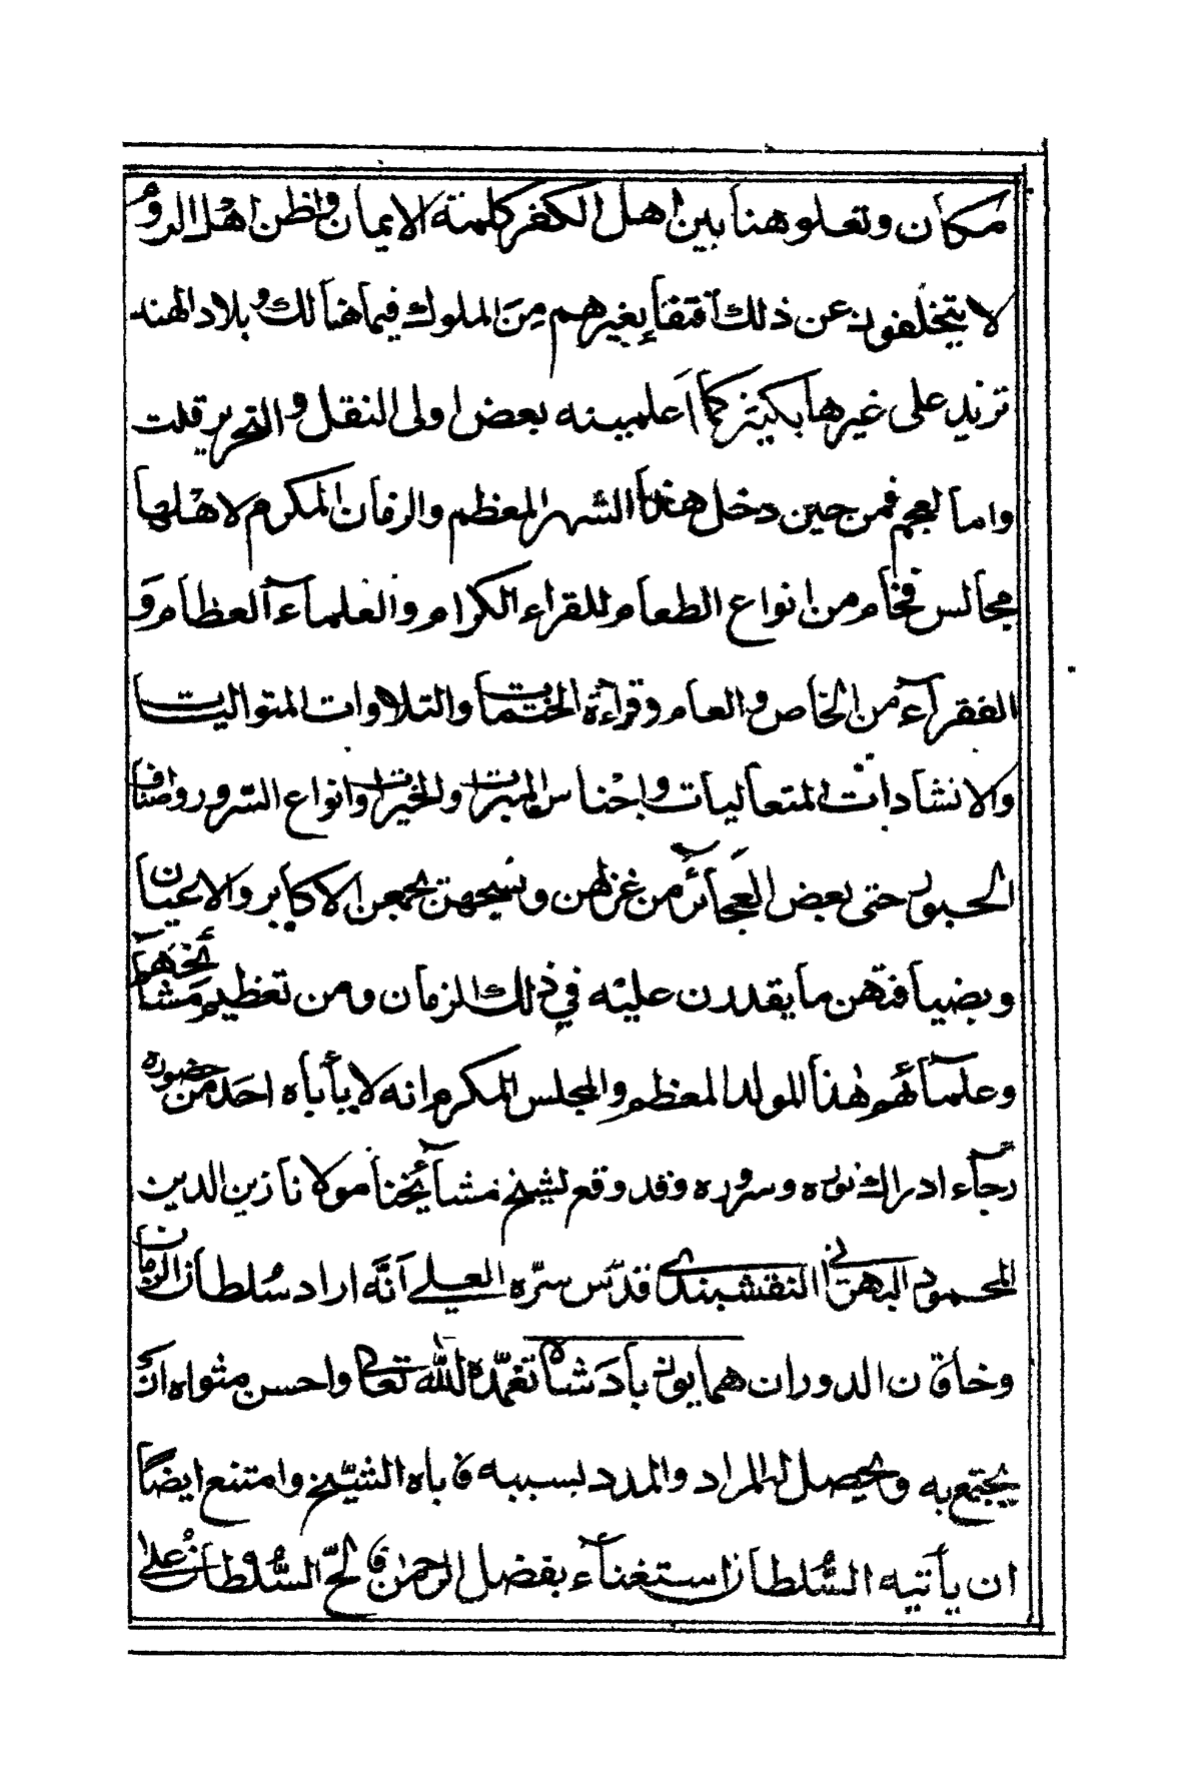 مكان وتعلو هنا بين اهل الكفر كلمة الايمان واظن اهل الروم
لا يتخلفون عن ذلك اقتفآ بغيرهم مِنَ الملوك فيما هنا لك و بلاد الهند
تزيد على غيرها بكثير كما اَعلمينه بعض اولى النقل و التحرير قلت
واما لعجم فمن حين دخل هذا الشهر المعظم والزمان المكرم لاهلها
مجالس فخام من انواع الطعام للقراء الكرام والعلمآء العظام وَ
الفقرآء من الخاص و العام وقرآءة الختمات والتلاوات المتواليات
والانشادات المتعاليات و اجْناس المبرات والخيرات وانواع السّرور واصناف
الحبور حتى بعض العَجآئز من غزلهن ونسجهن يجمعن الاكابر والاعيان
وبضيافتهن ما يقدرن عليْه في ذلك الزمان ومن تعظيم مَشآئخهم
وعلمآئهم هٰذا المولد المعظم والمجلس المكرم انه لا يأباه احَد من حضوره
رجآء ادراك نوره وسروره وقد وقع لشيخ مشآئخنا مولانا زين الدين
المحمود البهدانى النقشبندى قدّس سرّه العلى اَنَّه اراد سُلطان الزمان
وخاقان الدوران همايون بادَشاه تغمّده الله تعالى واحسن مثواه انَّ
يجتمع به ويحصل له المراد والمدد بسببه فاباه الشّيْخ وامتنع ايضًا
ان يأتيه السُّلطان استغنآء بفضل الرحمٰن فالحّ السُّلطان عُلىٰ